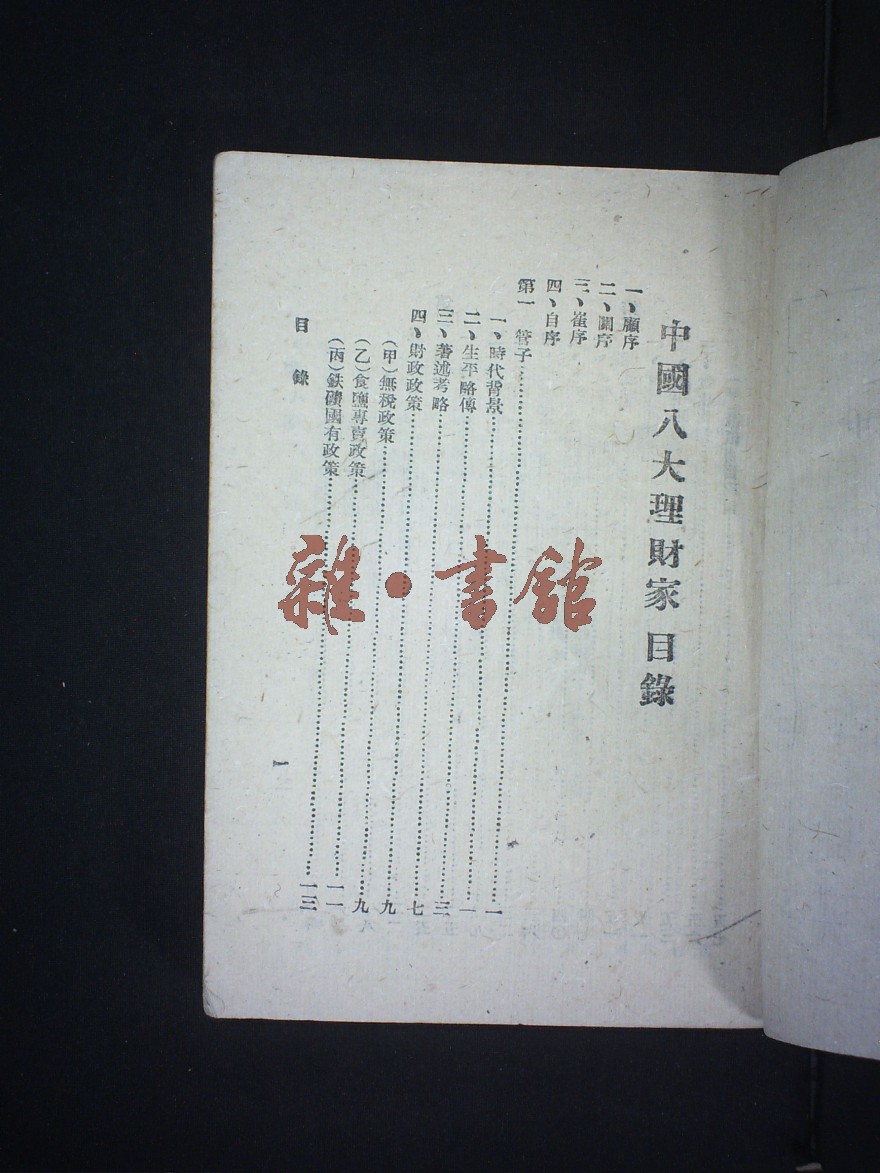 中國八大理財家 目錄
一、顧序
二、關序
三、崔序
四、自序
第一 管子……一
一、時代背景……一
二、生平略傳……三
三、著述考略……七
四、財政政策……九
（甲）無稅政策……九
（乙）食鹽專賣政策……一一
（丙）鉄礦國有政策……一三
目錄
一
雜·書館